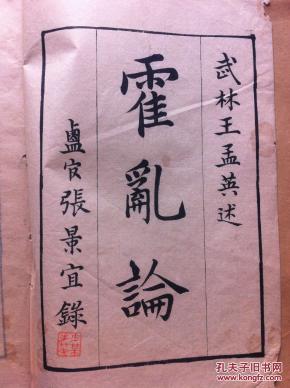 武林王孟英述
霍亂論
張景宜錄
孔夫子旧书网